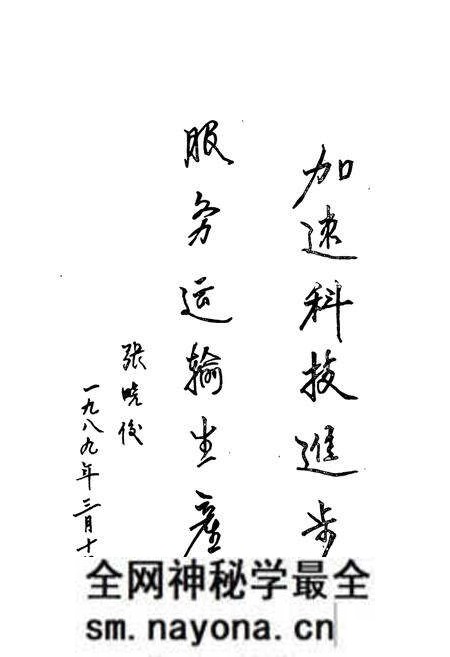 加速科技進步
服务运输生産
張曉俊
一九八九年三月十
全网神秘学最全
sm.nayona.cn